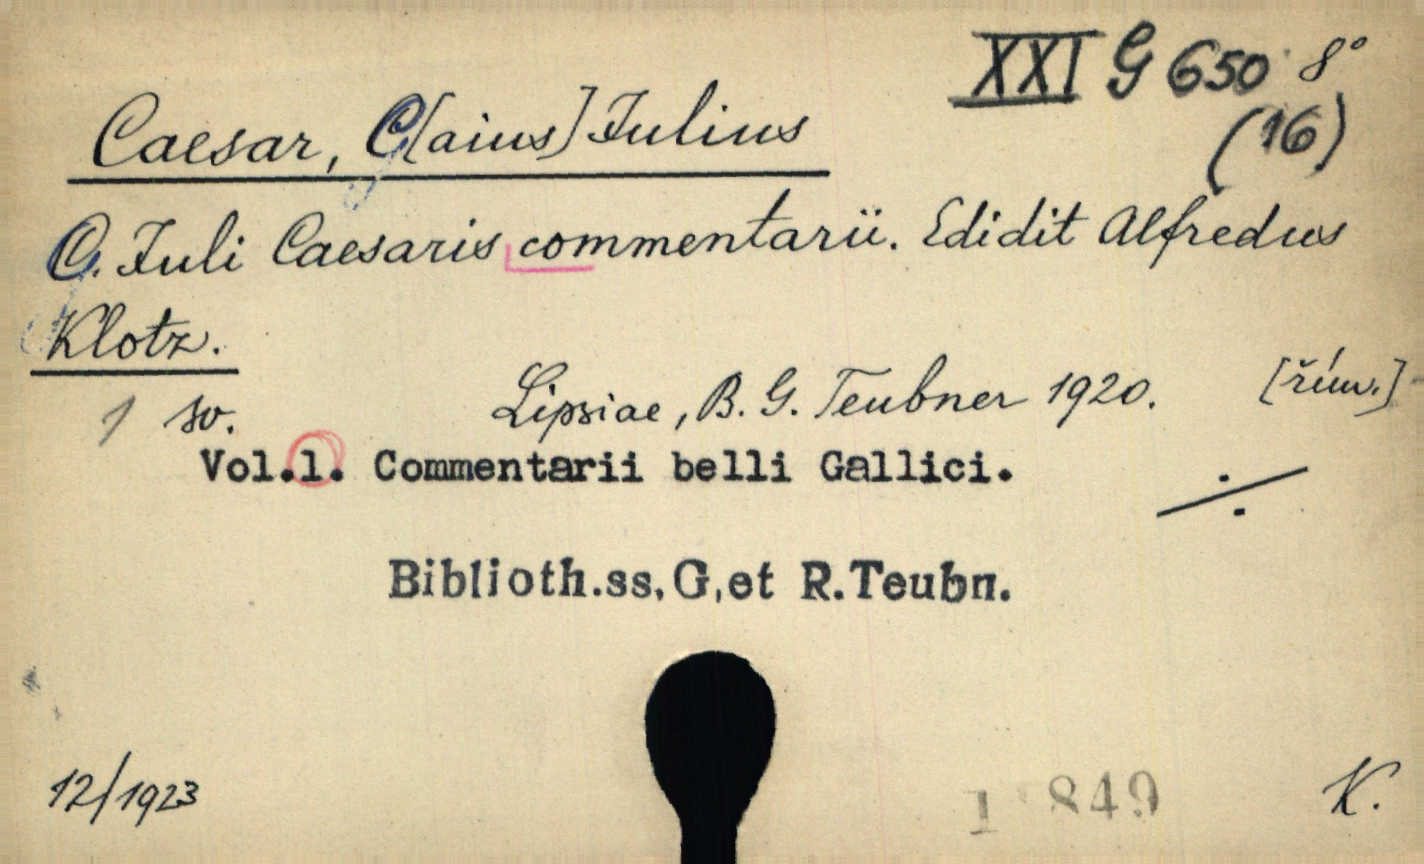 XXI G 650 8°
(16)
Caesar, C[aius] Julius
C. Juli Caesaris commentarii. Edidit Alfredus
Klotz.
1 sv. Lipsiae, B. G. Teubner 1920. [řím.]
Vol.1. Commentarii belli Gallici.
Biblioth.ss.G.et R.Teubn.
12/1923
1 849
K.